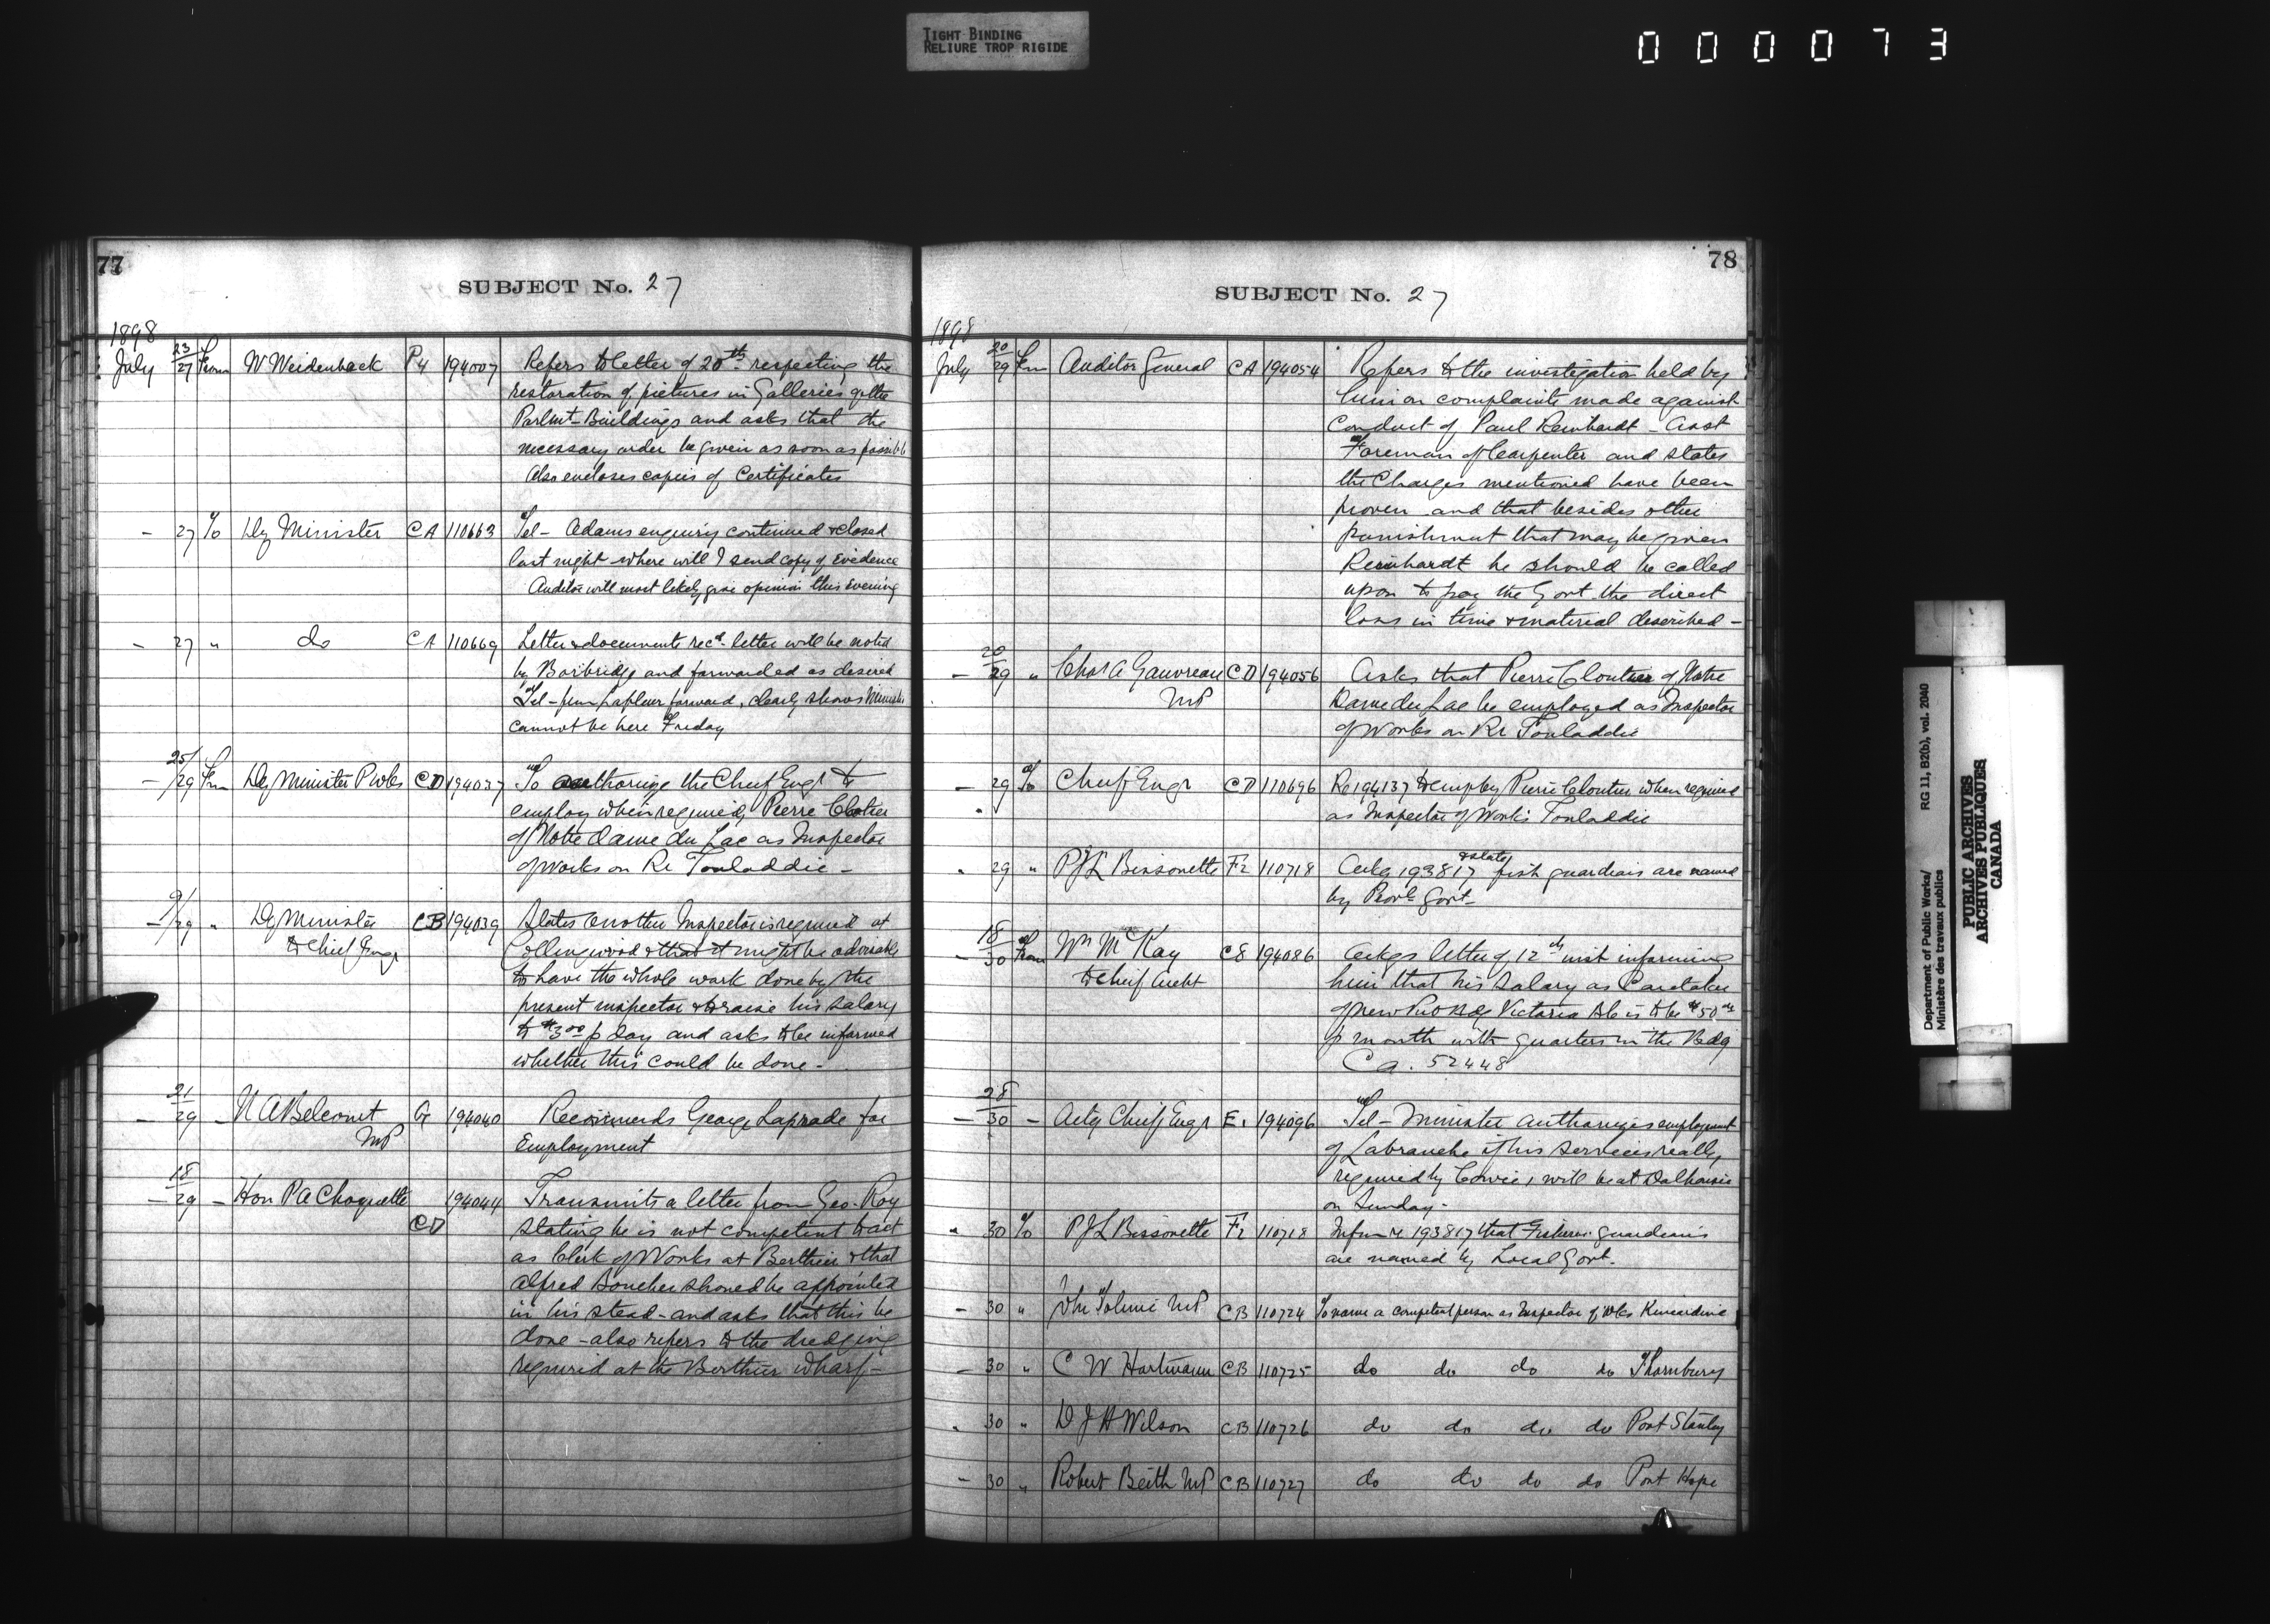 TIGHT BINDING
RELIURE TROP RIGIDE
000073
77
SUBJECT No. 27
1898
July 23/27 From W Weidenback P4 194007 Refers to letter of 20th respecting the
restoration of pictures in Galleries of the
Parlmt Buildings and asks that the
necessary order be given as soon as possible
Also encloses copies of Certificates
- 27 To Dy Minister CA 110663 Tel - Adams enquiry continued & closed
last night where will I send copy of Evidence
Auditor will most likely give opinion this Evening
- 27 " do CA 110669 Letter & documents recd. letter will be noted
by Borbridge and forwarded as desired
Tel - from Lafleur forward, clearly shows Minister
cannot be here Friday
- 25/29 Frm Dy Minister P wks CD 194037 To authorize the Chief Engr to
employ when required, Pierre Cloutier
of Notre dame du Lac as Inspector
of works on Re Touladdie -
- 9/29 " Dy Minister CB 194039 States another Inspector is required at
& Chief Engr Collingwood & that it might be advisable
to have the whole work done by the
present inspector & to raise his salary
to $3.00 p day and asks to be informed
whether this could be done -
- 21/29 - N A Belcourt G 194040 Recommends George Laprade for
MP Employment
- 18/29 - Hon P A Choquette 194044 Transmits a letter from Geo. Roy
CD stating he is not competent to act
as Clerk of Works at Berthier & that
Alfred Boucher should be appointed
in his stead - and asks that this be
done - also refers to the dredging
required at the Berthier wharf -
78
SUBJECT No. 27
1898
July 20/29 Frm Auditor General CA 194054 Refers to the investigation held by
him on complaints made against
conduct of Paul Reinhardt - Asst
Foreman of Carpenter and states
the Charges mentioned have been
proven and that besides other
punishment that may be given
Reinhardt he should be called
upon to pay the Govt. the direct
loss in time & material described -
- 20/29 " Chas A Gauvreau CD 194056 Asks that Pierre Cloutier of Notre
MP Dame du Lac be employed as Inspector
of Works on Re Touladdie
- 29 To Chief Engr CD 110696 Re 194137 to employ Pierre Cloutier when required
as Inspector of Works Touladdie
" 29 " P J L Bissonette F2 110718 Ackg 193817 & state fish guardians are named
by Provl Govt -
- 18/30 From Wm McKay CE 194086 Ackgs letter of 12th inst informing
to Chief Archt him that his salary as Caretaker
of new Pub Bdg Victoria Bb is to be $50.00
p month with quarters in the Bdg
Ca. 52448
- 28/30 - Actg Chief Engr E. 194096 Tel - Minister authorizes employment
of Labranche if his services really
required by Cowie, will be at Dalhousie
on Sunday -
" 30 To P J L Bissonette F2 110718 Infm re 193817 that Fisheries guardians
are named by Local Govt.
- 30 " Jhn Tolmie MP CB 110724 To name a competent person as Inspector of Wks Kincardine
- 30 " C W Hartmann CB 110725 do do do do Thornbury
" 30 " D J H Wilson CB 110726 do do do do Port Stanley
- 30 " Robert Beith MP CB 110727 do do do do Port Hope
Department of Public Works/ RG 11, B2(b), vol. 2040
Ministère des travaux publics
PUBLIC ARCHIVES
ARCHIVES PUBLIQUES
CANADA